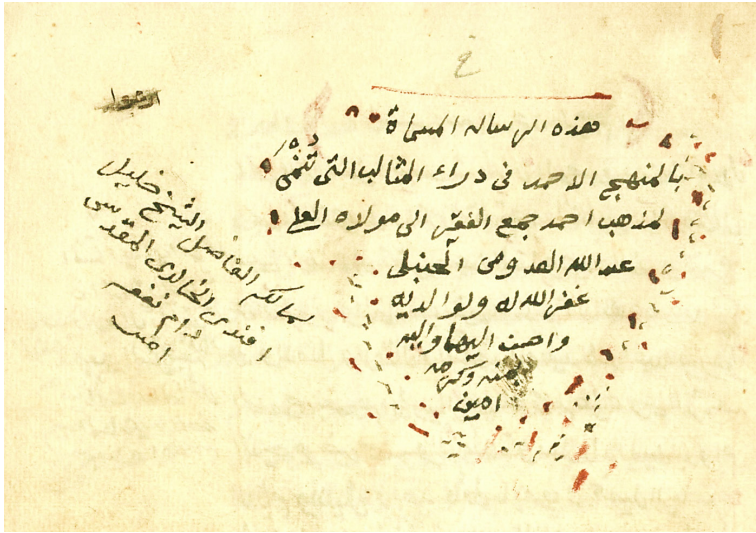 هذه الرساله المسماة
بالمنهج الاحمد فى دراء المثالب التى تُنْمَى
لمذهب احمد جمع الفقير الى مولاه العلي
عبد الله القدومى الحنبلى
غفر الله له ولوالديه
واحسن اليهما واليه
بمنه وكرمه
امين
لمالكه الفاضل الشيخ خليل
افندى الخالدى المقدسى
دام نفعه
امين